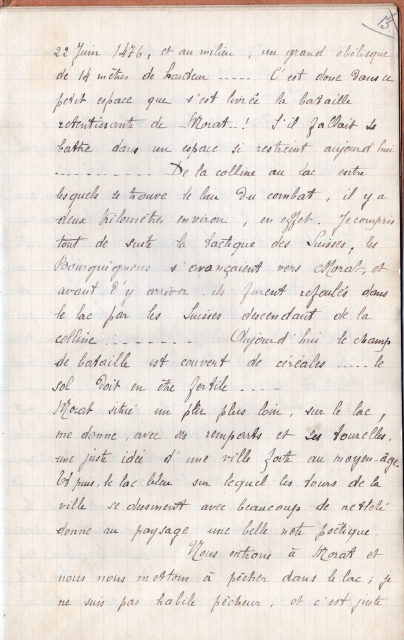 15
22 Juin 1476, et au milieu, un grand obélisque
de 14 mètres de hauteur ..... C'est donc dans ce
petit espace que s'est livrée la bataille
retentissante de Morat-! S'il fallait se
battre dans un espace si restreint aujourd'hui
.............. De la colline au lac entre
lesquels se trouve le lieu du combat, il y a
deux kilomètres environ, en effet. Je compris
tout de suite la tactique des Suisses, les
Bourguignons s'avançaient vers Morat, et
avant d'y arriver ils furent refoulés dans
le lac par les Suisses descendant de la
colline ......... Aujourd'hui le champ
de bataille est couvert de céréales ..... le
sol doit en être fertile ....
Morat situé un peu plus loin, sur le lac,
me donne avec ses remparts et ses tourelles,
une juste idée d'une ville forte au moyen-âge.
Et puis, le lac bleu sur lequel les tours de la
ville se dessinent avec beaucoup de netteté
donne au paysage une belle note poëtique.
Nous entrons à Morat et
nous nous mettons à pêcher dans le lac; je
ne suis pas habile pêcheur, et c'est juste